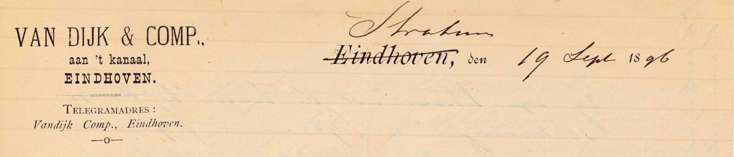 VAN DIJK & COMP.,
aan 't kanaal,
EINDHOVEN.
TELEGRAMADRES:
Vandijk Comp., Eindhoven.
Stratum
Eindhoven, den 19 Sept 1896